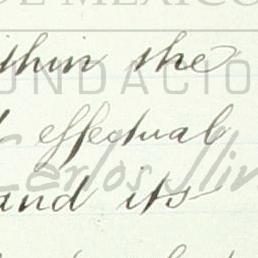 DE MÉXICO
within the
FUNDACIÓN
effectual
Carlos Slim
and its